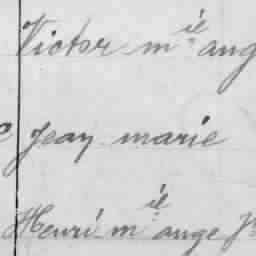 Victor m^ie ang
e Jean marie
Henri m^ie ange J^h